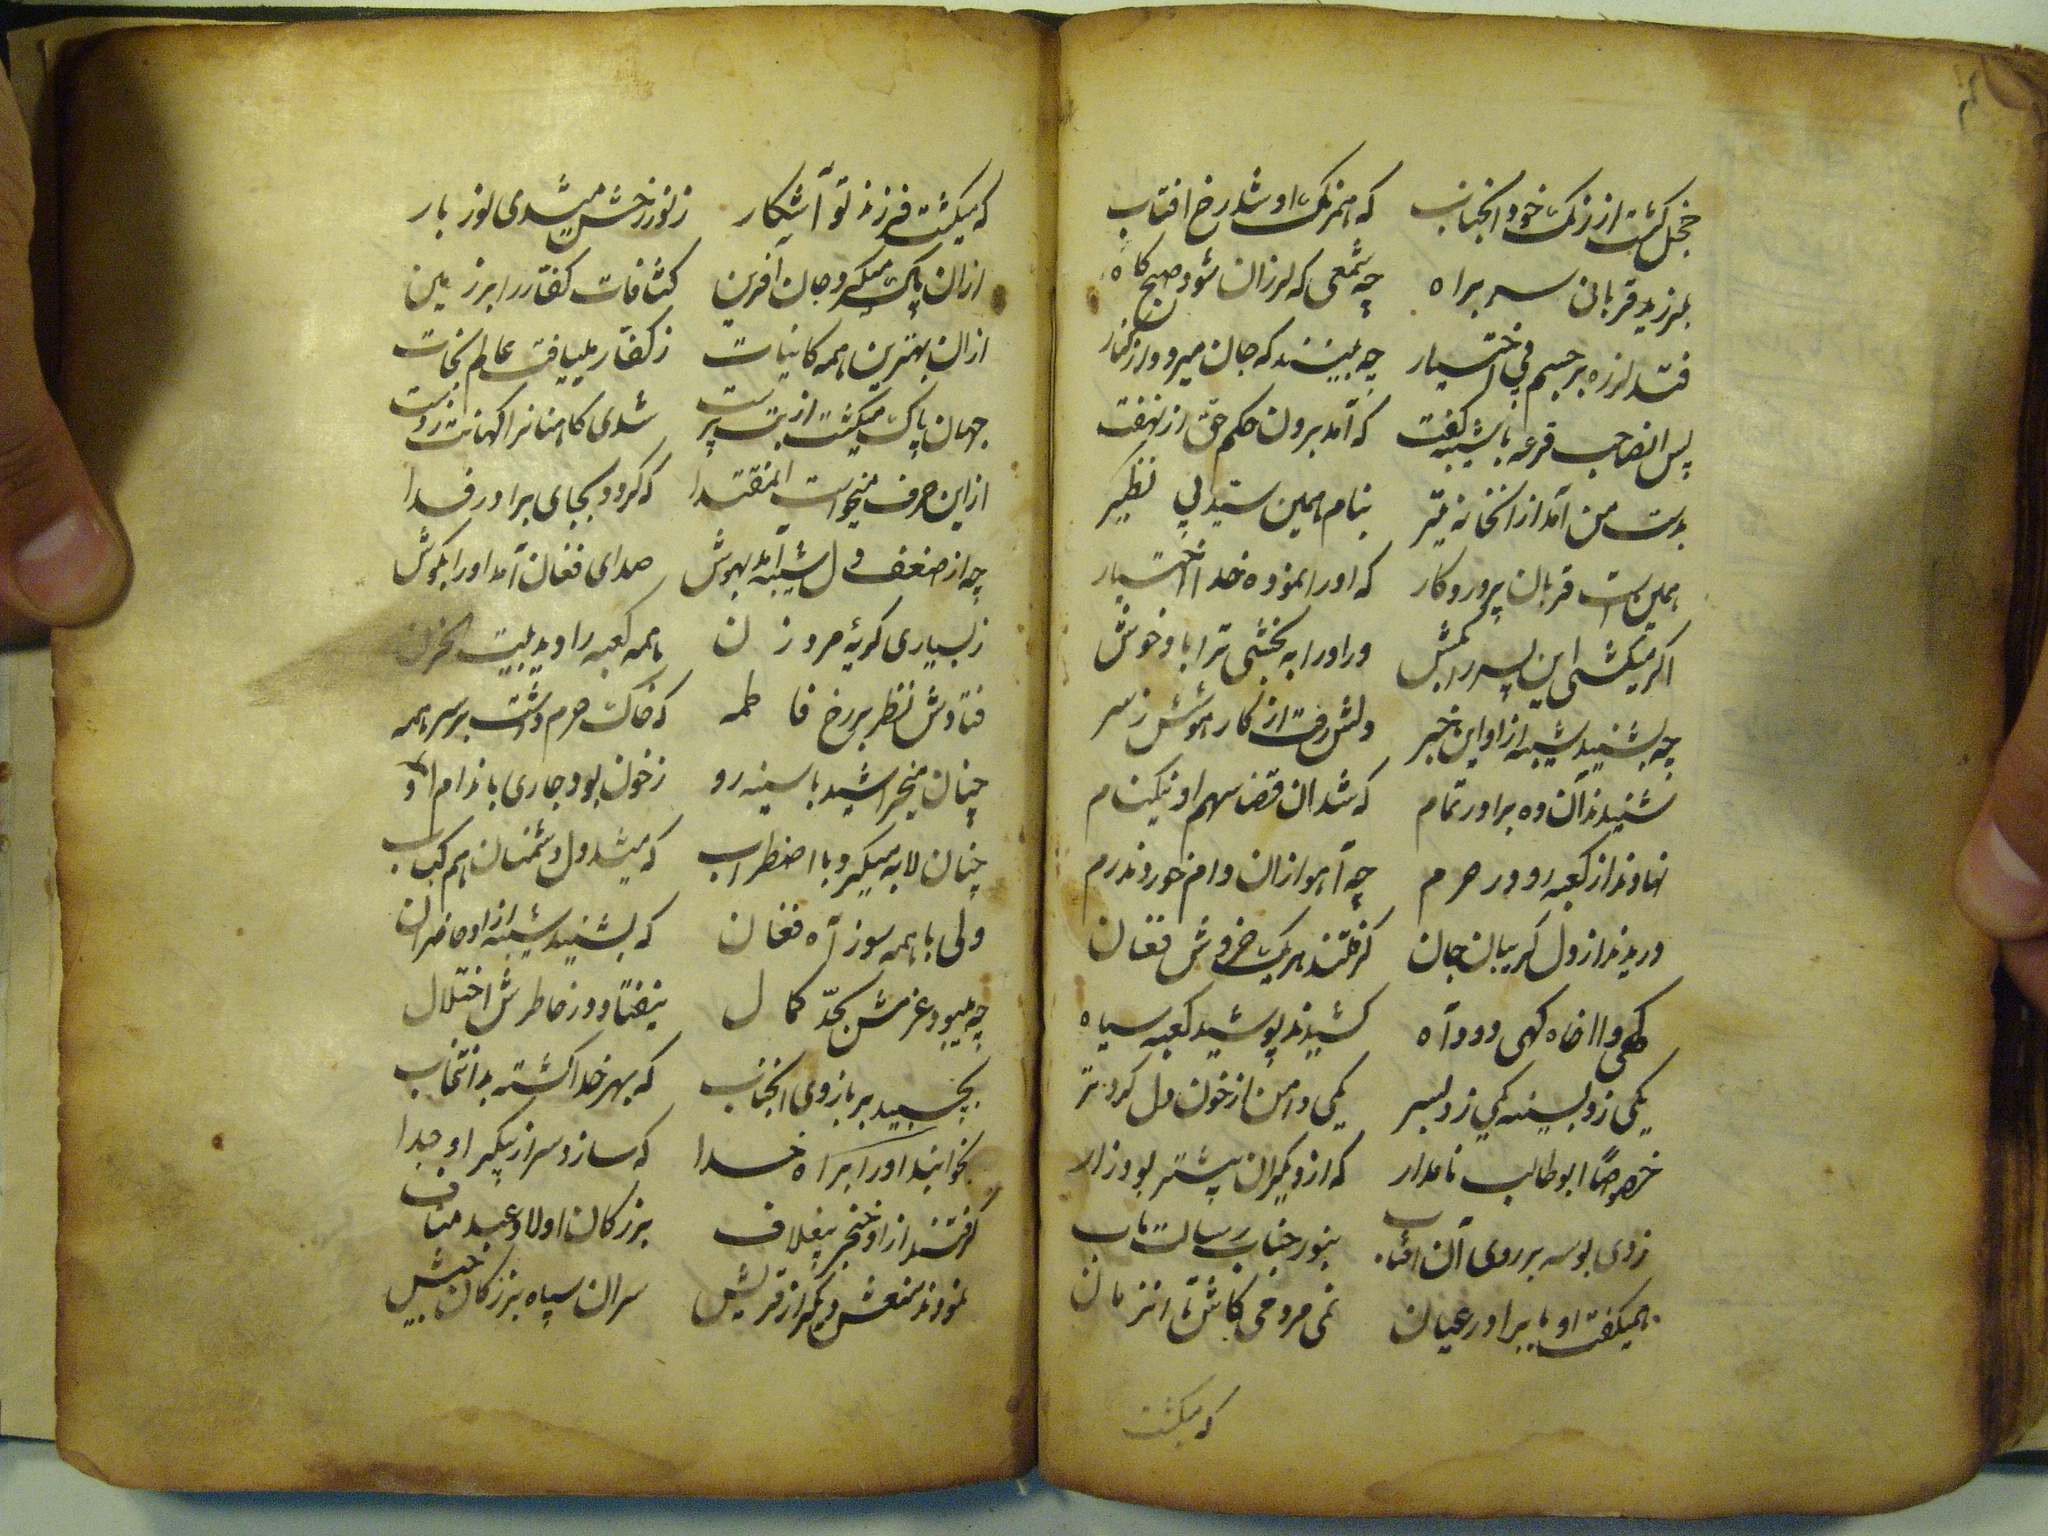 خجل کشت از رنک خود انجناب که همرنک او شد رخ افتاب
بلرزید قربان سر براه چه شمعی که لرزان شود صبح کاه
فتد لرزه بر جسم بی اختیار چه بیند که جان میرود از کنار
پس انصاحب قرعه با شیبه کفت که آمد برون حکم حق از نهفت
بدست من آمد از انخانه تیر بنام همین سید بی نظیر
همین است قربان پروردکار که اورا نموده خدا اختیار
اکر میکشی این پسر را بکش ور اورا به بخشی ترا باد خوش
چه بشنید شیبه از او این خبر دلش رفت از کار هوشش ز سر
شنیدند آن ده برادر تمام که شد ان قضا سهم او نیکنام
نهادند از کعبه رو در حرم چه آهو ازان دام خوردند رم
دریدند از دل کریبان جان کرفتند هر یک خروش فغان
کشیدند پوشید کعبه سیاه
یکی زد بسینه یکی زد بسر یکی دامن از خون دل کرد تر
خصوصا ابو طالب نامدار که از دیکران پیشتر بود زار
زدی بوسه بر روی آن افتاب بنور جناب رسالت ماب
همیکفت او با برادر عیان نمی مردمی کاش تا انزمان
که میکشت
که میکشت فرزند تو آشکار ز نور رخش میشدی نور بار
ازان پاک میکرد جان آفرین کثافات کفار را بر زمین
ازان بهترین همه کاینات ز کفار مییافت عالم نجات
جهان پاک میکشت از بت پرست شدی کاهنانرا کهانت ز دست
ازاین حرف میخواست المقتدا که کردد بجای برادر فدا
چه از ضعف دل شیبه آمد بهوش صدای فغان آمد اورا بکوش
ز بسیاری کریهٔ مرد و زن همه کعبه را دید بیت الحزن
فتادش نظر بر رخ فاطمه که خاک حرم داشت بر سر همه
چنان میخراشید با سینه رو ز خون بود جاری باندام او
چنان لابه میکرد با اضطراب که میشد دل دشمنان هم کباب
ولی با همه سوز آه فغان که بشنید شیبه از او حاضران
چه میبود عزمش بحد کمال نیفتاد در خاطرش اختلال
بچسبید بر بازوی انجناب که بهر خدا کشته بد انتخاب
بخوابند اورا براه خدا که سازد سر از پیکر او جدا
کرفتند از او خنجر بیغلاف بزرکان اولاد عبد مناف
نمودند منعش دیکر از قریش سران سپاه بزرکان جیش